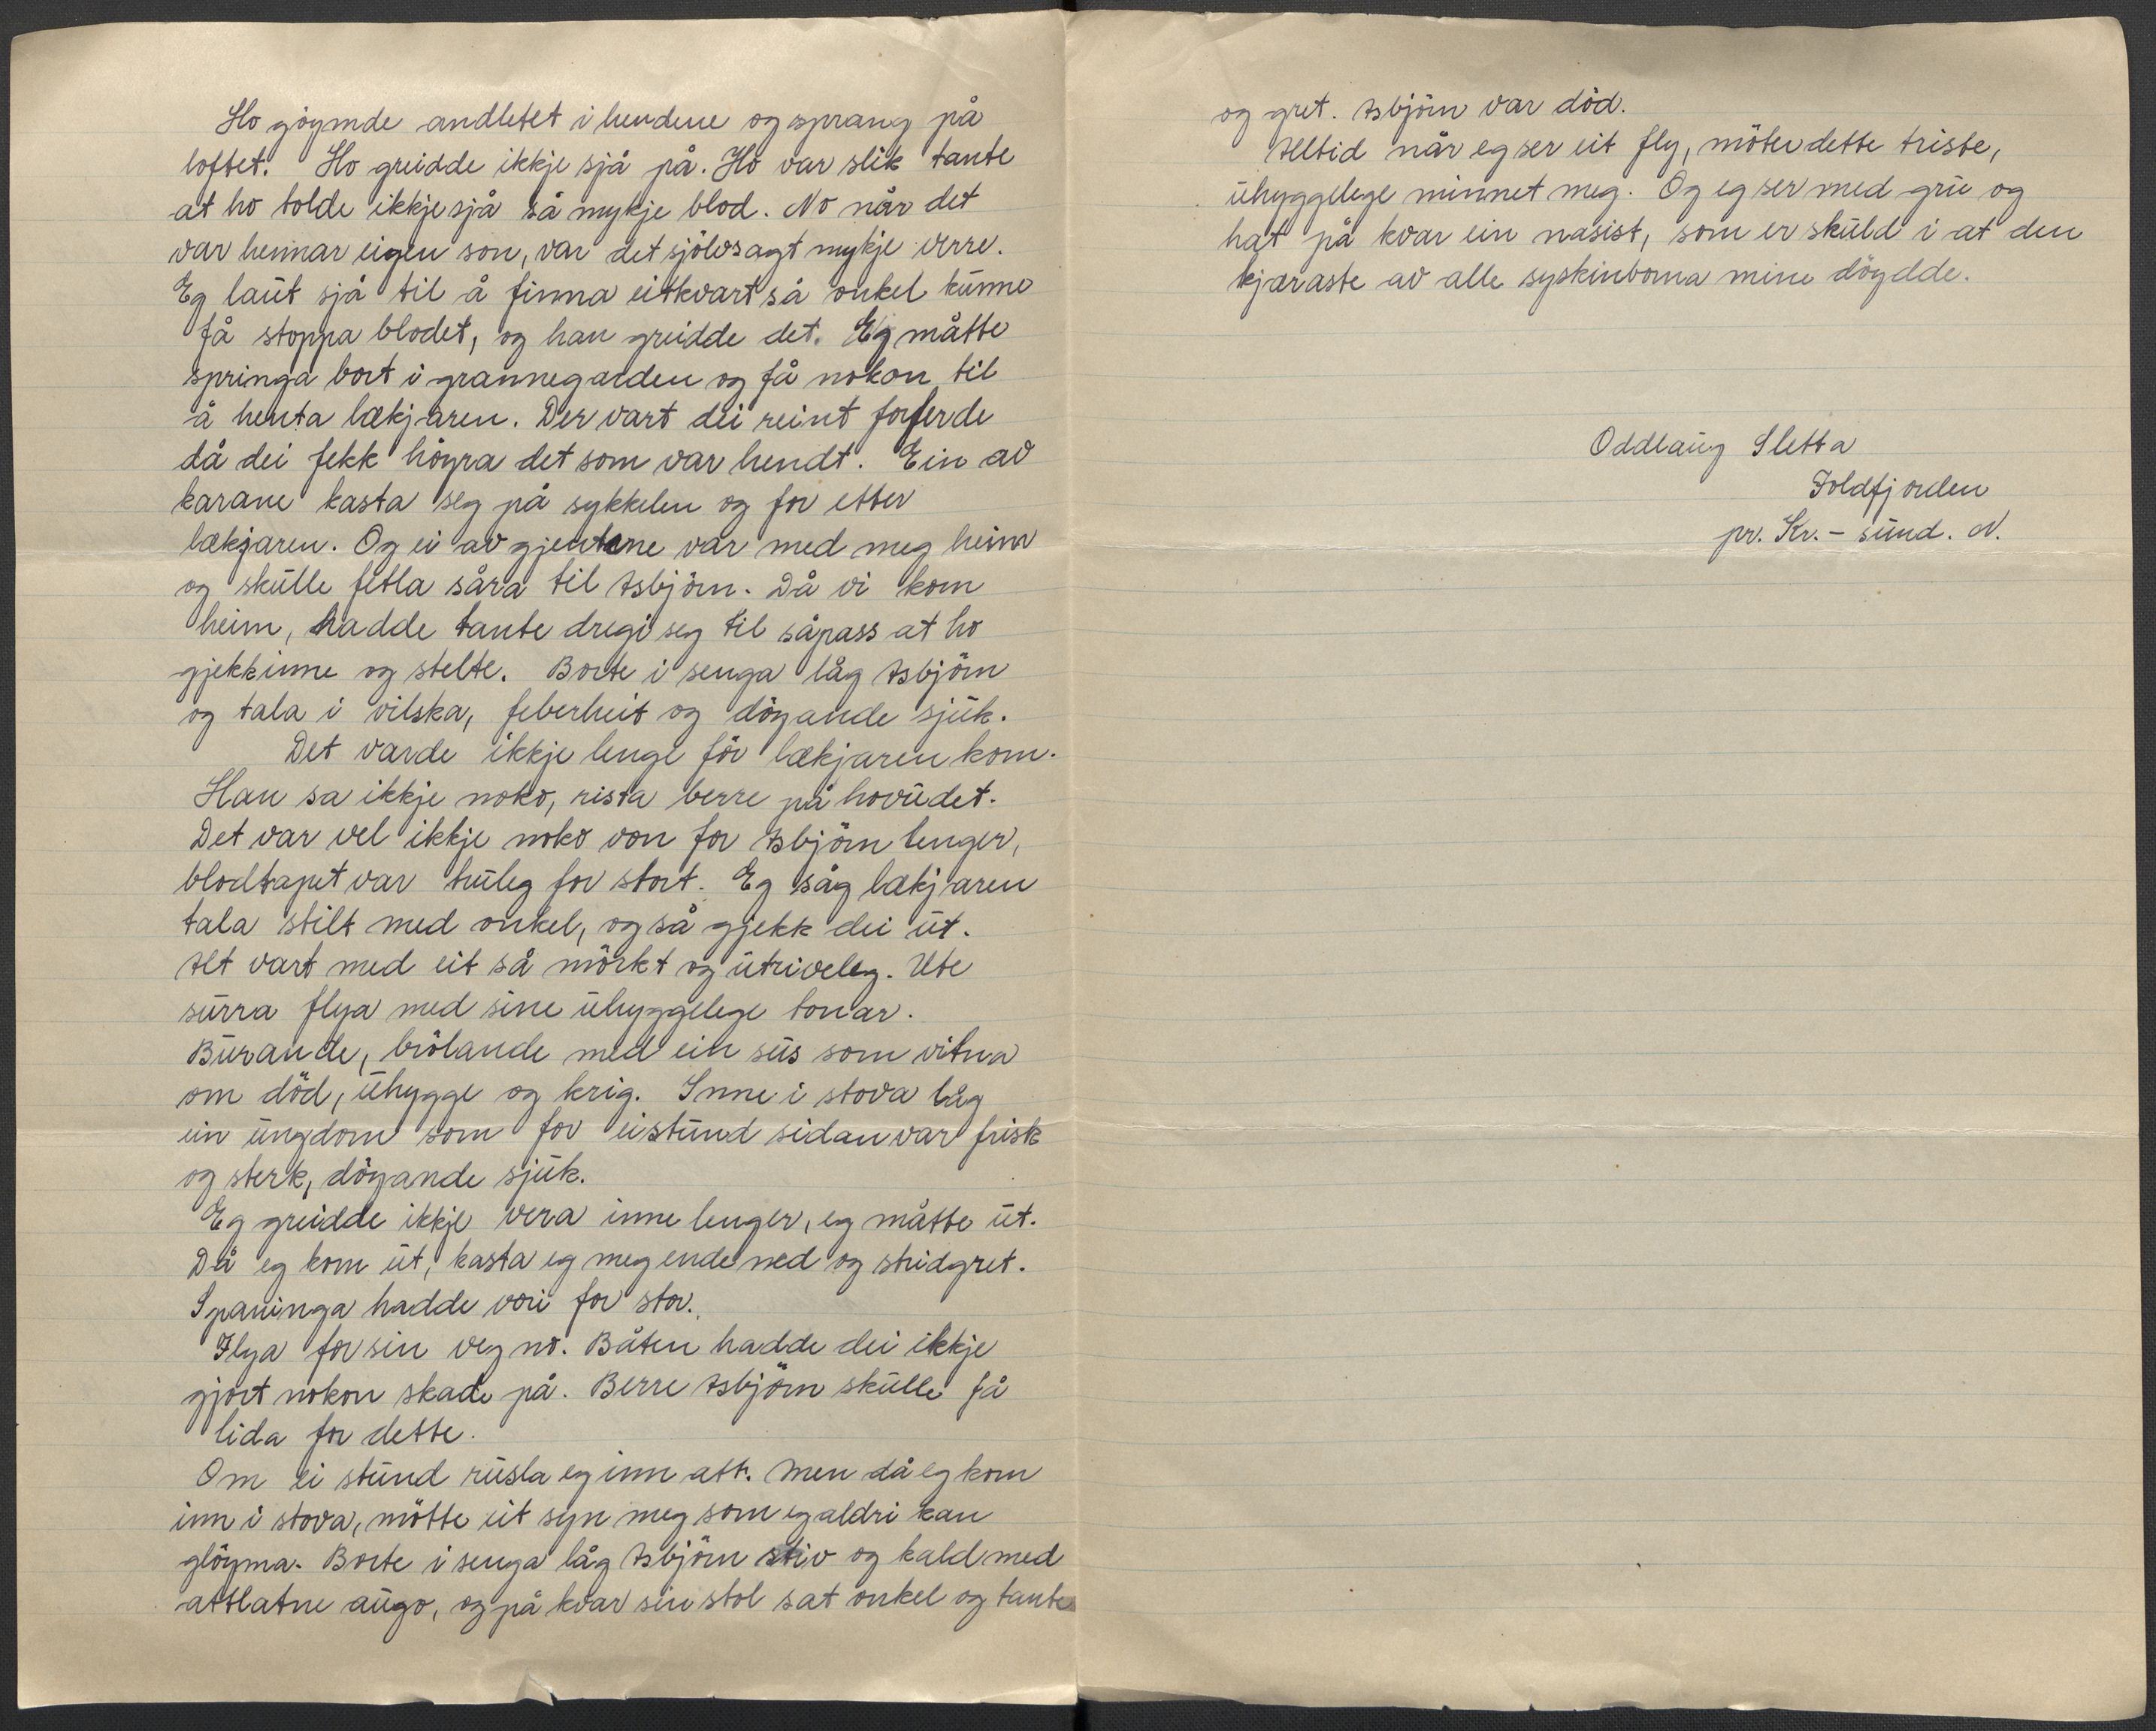 Ho gjøymde andletet i hendene og sprang på
loftet. Ho greidde ikkje sjå på. Ho var slik tante
at ho tolde ikkje sjå så mykje blod. No når det
var hennar eigen son, var det sjölvsagt mykje verre.
Eg laut sjå til å finna eitkvart så onkel kunne
få stoppa blodet, og han greidde det. Eg måtte
springa bort i grannegarden og få nokon til
å henta lækjaren. Der vart dei reint forferde
då dei fekk höyra det som var hendt. Ein av
karane kasta seg på sykkelen og for etter
lækjaren. Og ei av gjentene var med meg heim
og skulle fetla såra til Asbjörn. Då vi kom
heim, hadde tante dregi seg til såpass at ho
gjekk inne og stelte. Borte i senga låg Asbjörn
og tala i vilska, feberheit og döyande sjuk.
Det varde ikkje lenge för lækjaren kom.
Han sa ikkje noko, rista berre på hovudet.
Det var vel ikkje noko von for Asbjörn lenger,
blodtapet var truleg for stort. Eg såg lækjaren
tala stilt med onkel, og så gjekk dei ut.
Alt vart med eit så mörkt og utriveleg. Ute
surra flya med sine uhyggelege tonar.
Burande, brölande med ein sus som vitna
om död, uhygge og krig. Inne i stova låg
ein ungdom som for ei stund sidan var frisk
og sterk, döyande sjuk.
Eg greidde ikkje vera inne lenger, eg måtte ut.
Då eg kom ut, kasta eg meg ende ned og stridgret.
Spaninga hadde vori for stor.
Flya for sin veg no. Båten hadde dei ikkje
gjort nokon skade på. Berre Asbjörn skulle få
lida for dette.
Om ei stund rusla eg inn att. Men då eg kom
inn i stova, mötte eit syn meg som eg aldri kan
glöyma. Borte i senga låg Asbjörn stiv og kald med
attlatne augo, og på kvar sin stol sat onkel og tante
og gret. Asbjörn var död.
Alltid når eg ser eit fly, möter dette triste,
uhyggelege minnet meg. Og eg ser med gru og
hat på kvar ein nasist, som er skuld i at den
kjæraste av alle syskinborna mine döydde.
Oddlaug Sletta
Foldfjorden
pr. Kr.- sund. N.